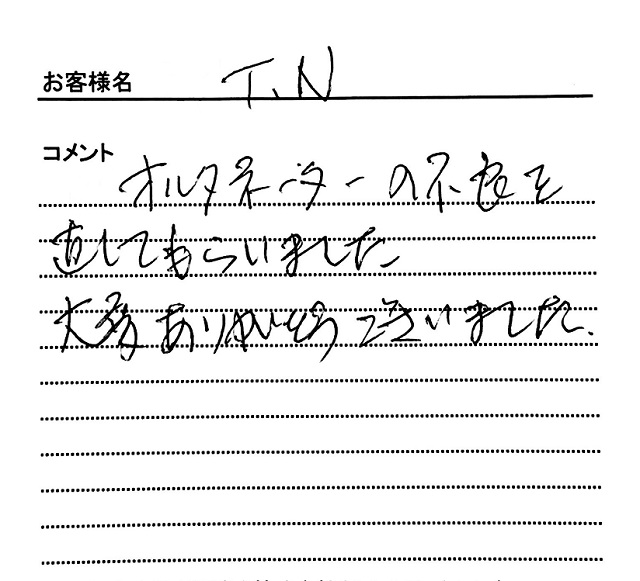 お客様名 T.N
コメント
オルタネーターの不良を
直してもらいました
大変ありがとう ございました.